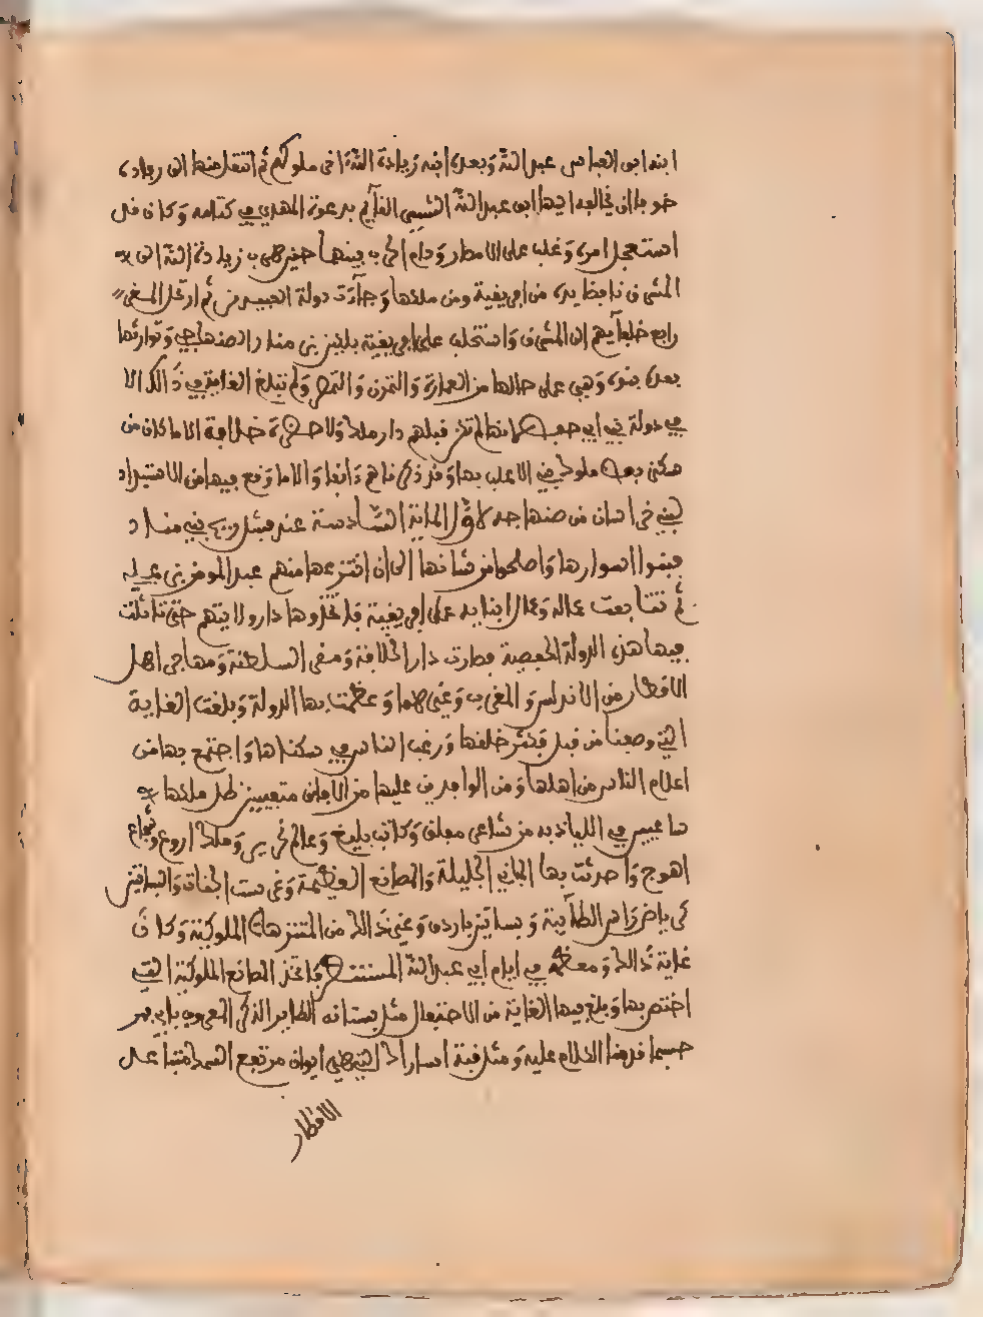 ابنه ابى العباس عبد الله وبعده ابنه زيادة الله اخر ملوكهم ثم انتقل منها الى رفاده
خوفا من مخالفه ابى عبد الله الشيعي القآيم بدعوة المهدي في كتامه وكان قد
استفحل امره وغلب على الامصار ودام الحرب بينهما حتى هرب زيادة الله الى
المشرق نافضا يده من افريقية ومن ملكها وجآءت دولة العبيديين ثم ارتحل المعز
رابع خلفآيهم الى المشرق واستخلف على افريقية بلقين بن مناد الصنهاجي وتوارثها
بعده بنوه وهي على حالها من العمارة والتمدن والتمصر ولم تبلغ الغاية في ذالك الا
في دولة بني ابي حفص لانها لم تكن قبلهم دار ملك ولا حضرة خلافة الا ما كان من
سكنى بعض ملوك بني الاغلب بها وقد ذكرناهم ءانفا والا ما وقع فيها من الاستبداد
لبني خراسان من صنهاجه لاول الماية السادسة عند فشل ريح بني مناد
فبنوا اسوارها واصلحوا من شانها الى ان انتزعها منهم عبد المومن بن علي
ثم تتابعت عماله وعمال ابنايه على افريقية فاتخذوها دار ولايتهم حتى تاثلت
فيها هذه الدولة الحفصية فصارت دار الخلافة ومقر السلطنة ومهاجر اهل
الاقطار من الاندلس والمغرب وغيرهما وعظمت بها الدولة وبلغت الغاية
التي وصفنا من قبل فكثر خلقها ورغب الناس في سكناها واجتمع بها من
اعلام الناس من اهلها ومن الوافدين عليها من الافاق متفييين ظل ملكها
ما غيبس في اللياذ به من شاعر مفلق وكاتب بليغ وعالم نحرير وملك اروع وشجاع
اهوج واحدثت بها المباني الجليلة والمصانع العظيمة وغرست الجنات والبساتين
كرياض راس الطآبية وبساتين باردو وغير ذالك من المتنزهات الملوكية وكان
غاية ذالك ومعظمه في ايام ابي عبد الله المستنصر فاتخذ المصانع الملوكية التي
اختص بها وبلغ فيها الغاية من الاحتفال مثل بستانه الطاير الذكر المعروف بابي فهر
حسبما قدمنا الكلام عليه ومثل قبة اساراك التي هي ايوان مرتفع السمك متباعد
الاقطار